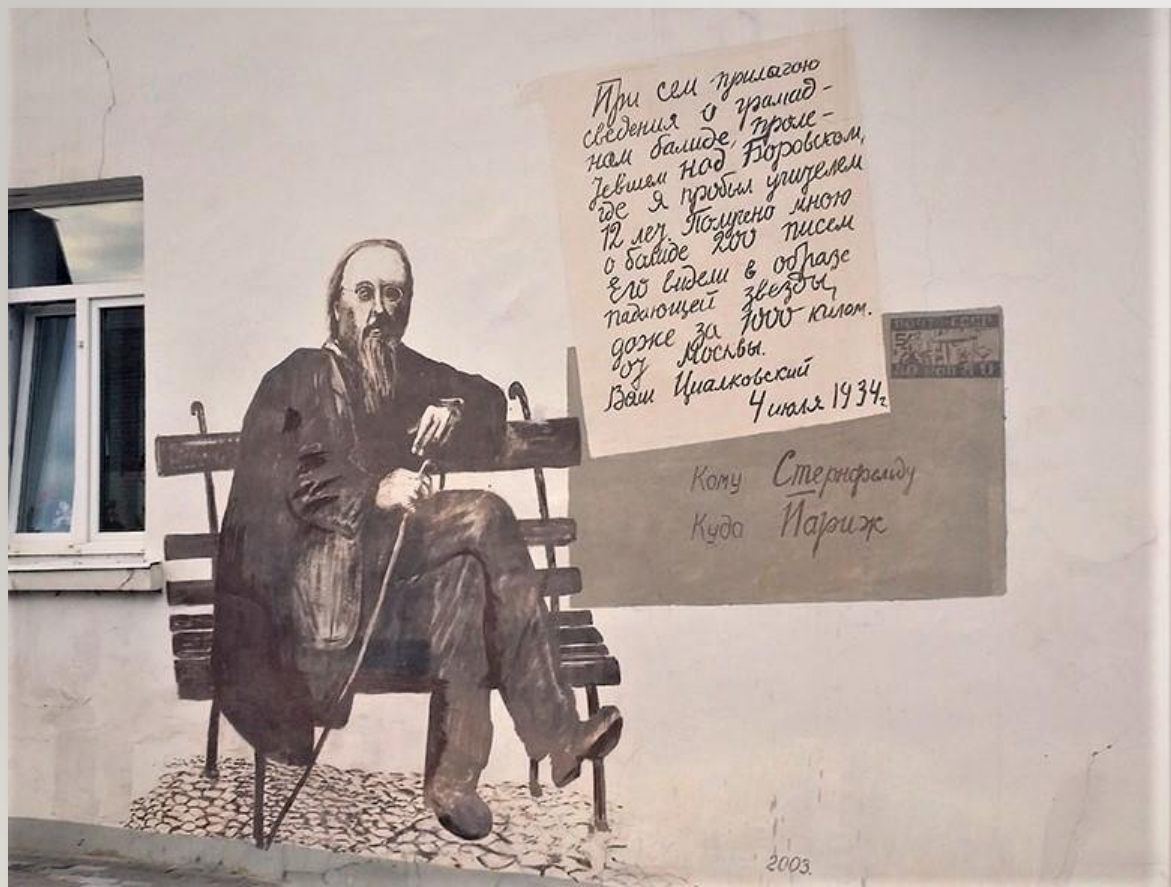 При сем прилагаю
сведения о грамад-
нам балиде, проле-
тевшем над Боровском,
где я пробыл учителем
12 лет. Получено мною
о балиде 200 писем
Его видели в образе
падающей звезды,
даже за 1000 килом.
от Москвы.
Ваш Циалковский
4 июля 1934г
ПОЧТА СССР
Кому Стернфельду
Куда Париж
2003.